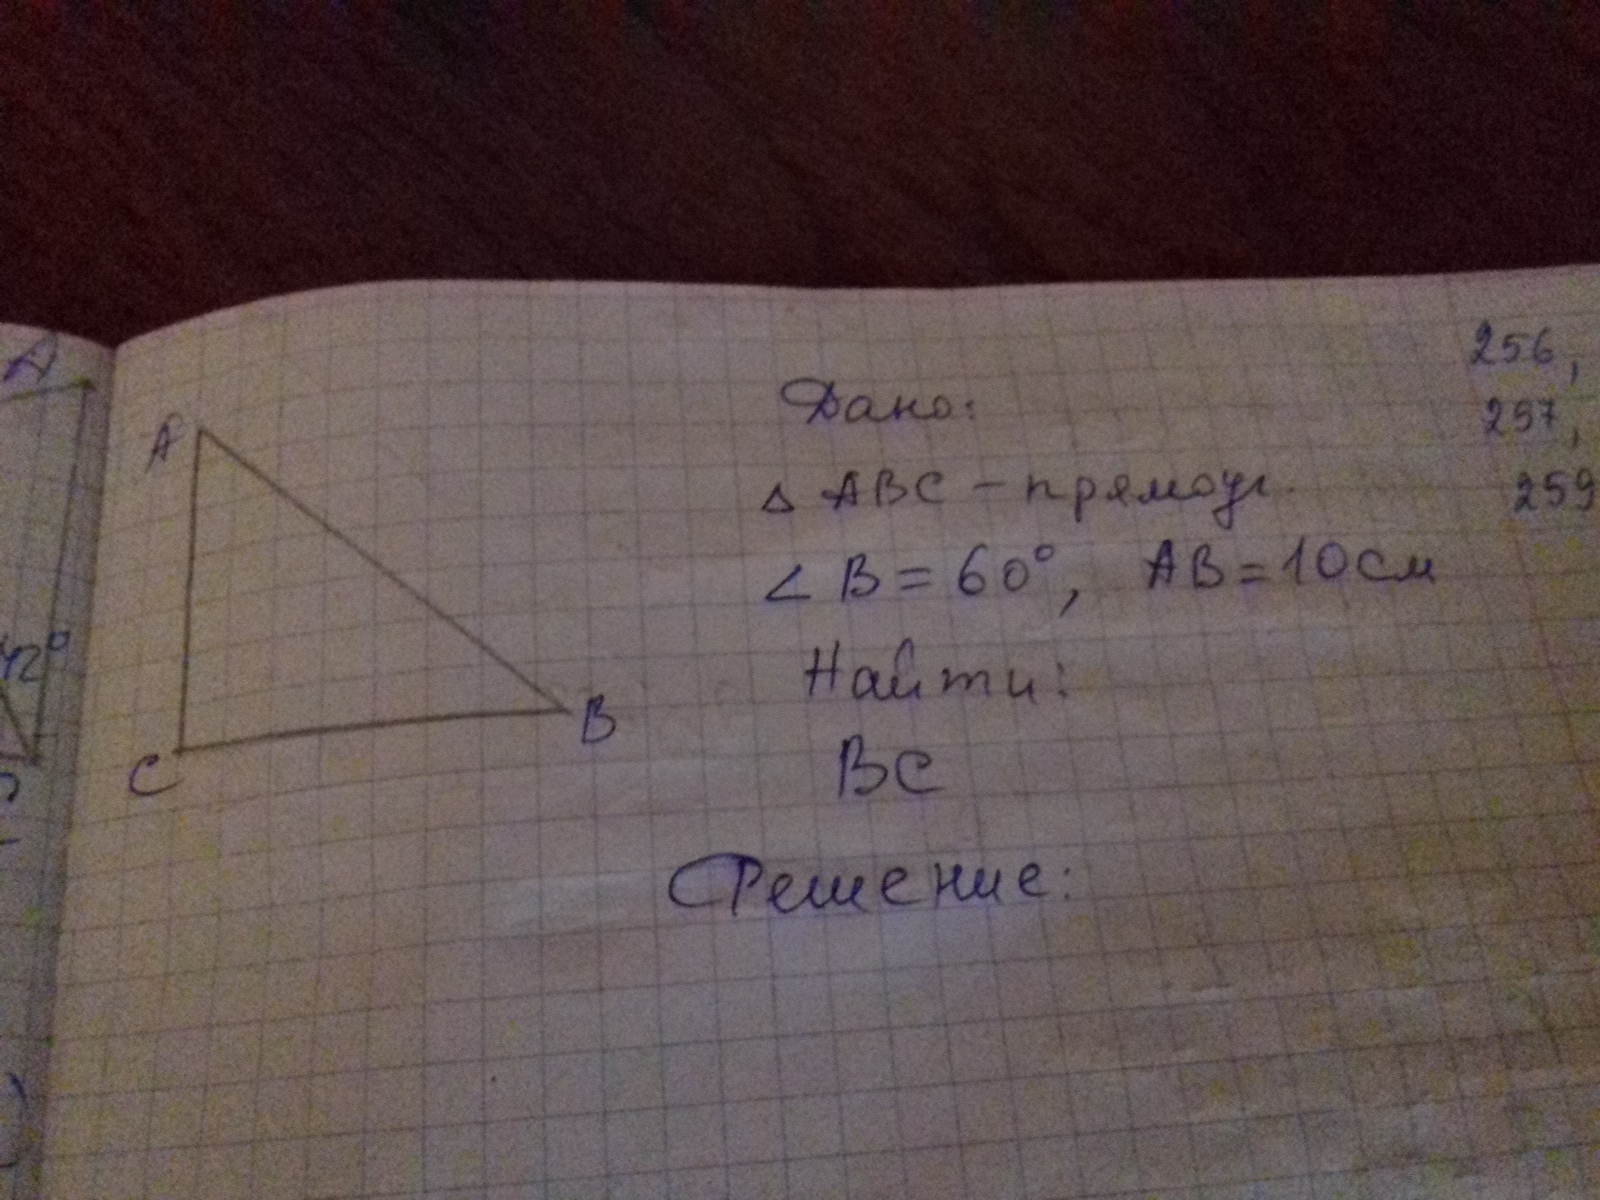 A
42°
A
B
C
Дано:
△ ABC – прямоуг.
∠ B = 60°, AB = 10 см
Найти:
BC
Решение:
256,
257,
259